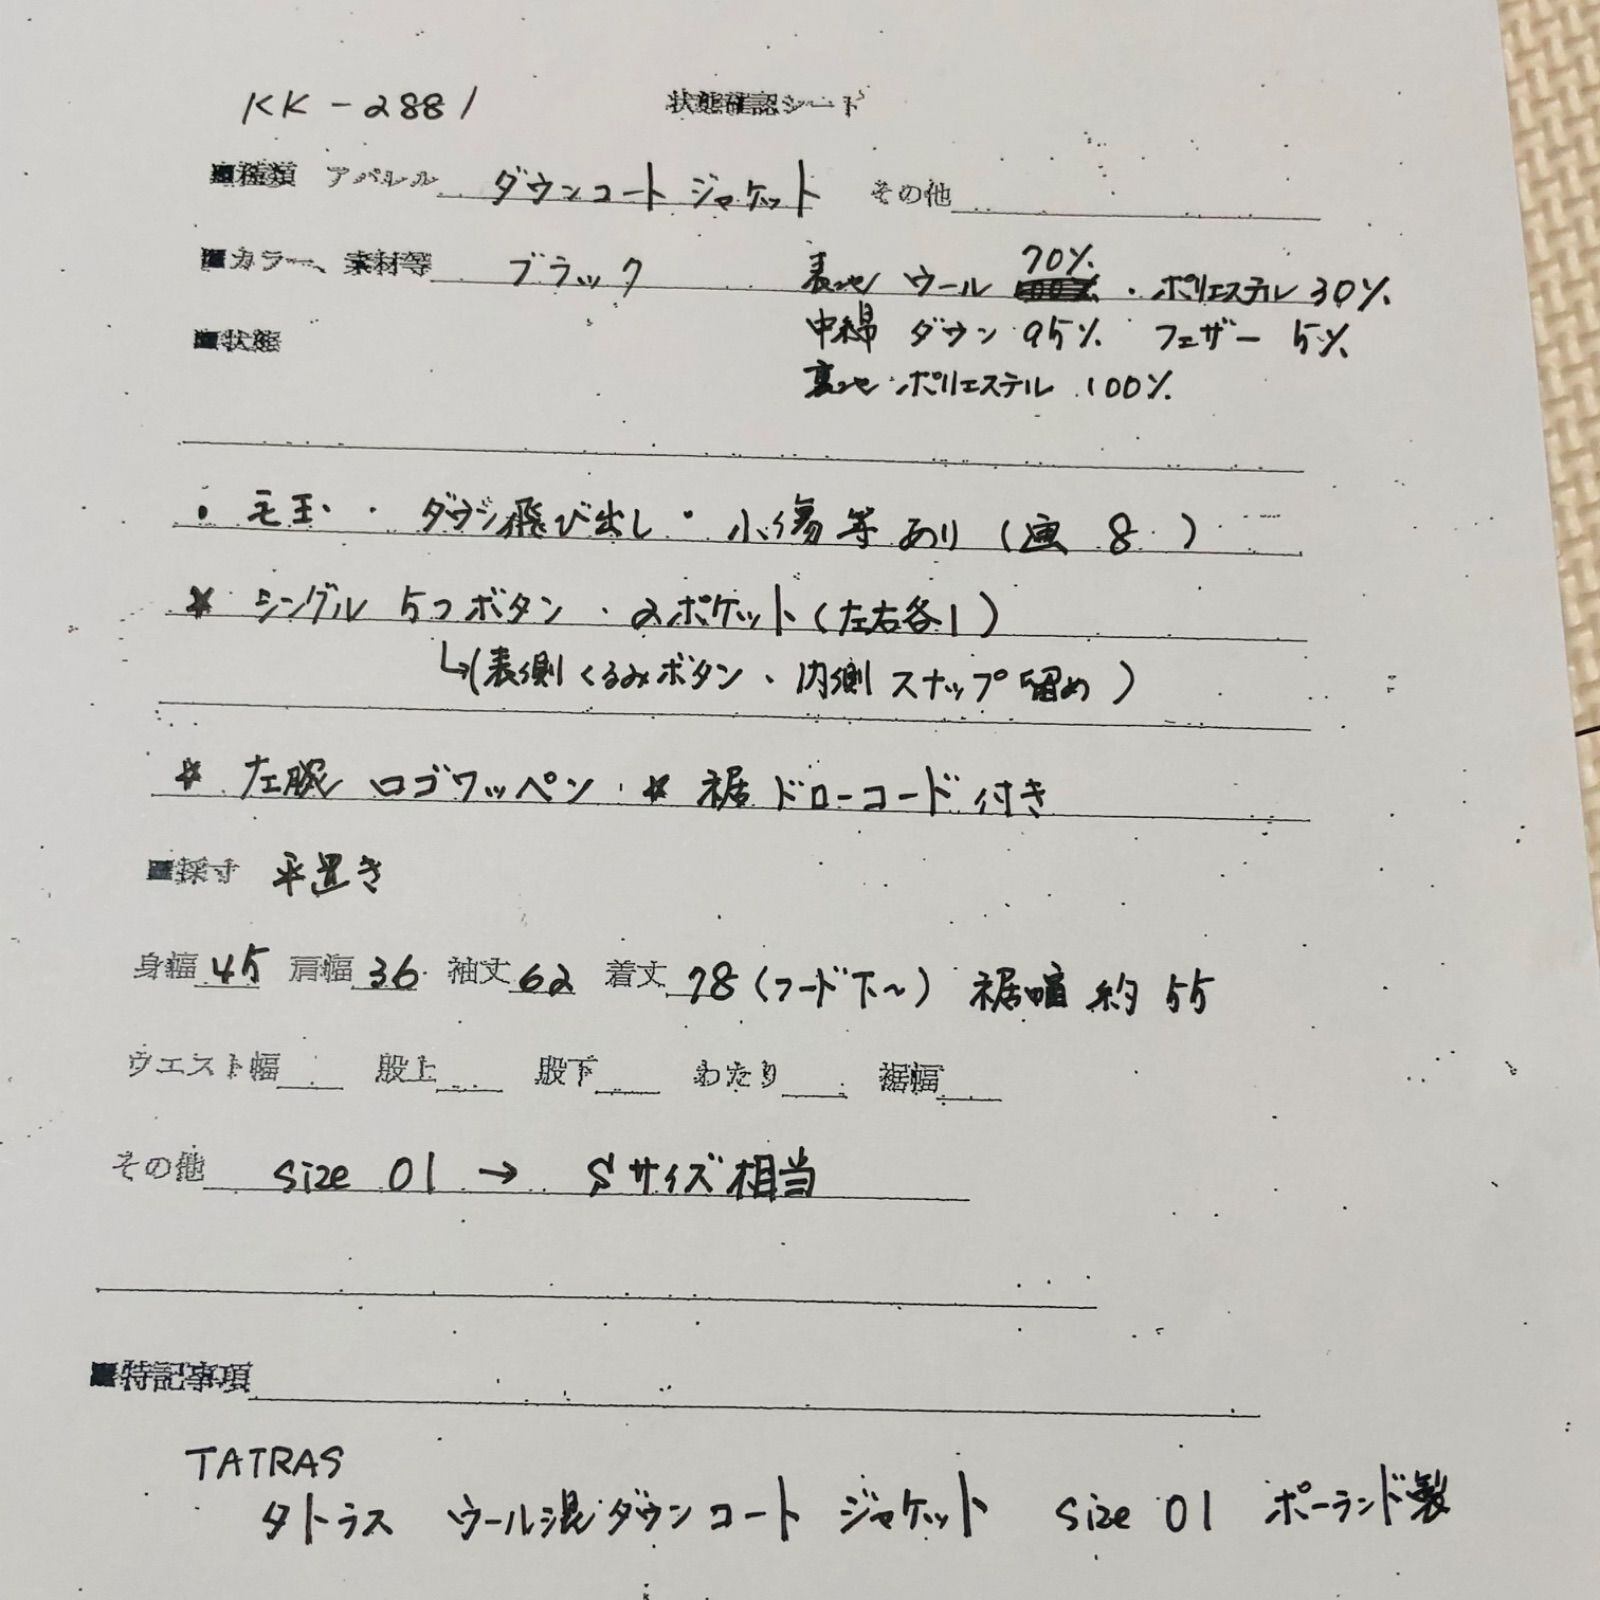 KK-2881 状態確認シート
■種類 アパレル ダウンコート ジャケット その他
■カラー、素材等 ブラック 表地 ウール 70% ・ポリエステル 30%
■状態 中綿 ダウン 95% フェザー 5%
裏地・ポリエステル 100%
・毛玉・ダウン飛び出し・小傷等あり(画 8 )
* シングル 5つボタン・2ポケット(左右各1)
↳(表側くるみボタン、内側スナップ留め)
* 左腕 ロゴワッペン * 裾ドローコード付き
■採寸 平置き
身幅 45 肩幅 36 袖丈 62 着丈 78(フード下〜) 裾幅 約 55
ウエスト幅 股上 股下 わたり 裾幅
その他 size 01 → Sサイズ相当
■特記事項
TATRAS
タトラス ウール混ダウンコート ジャケット size 01 ポーランド製